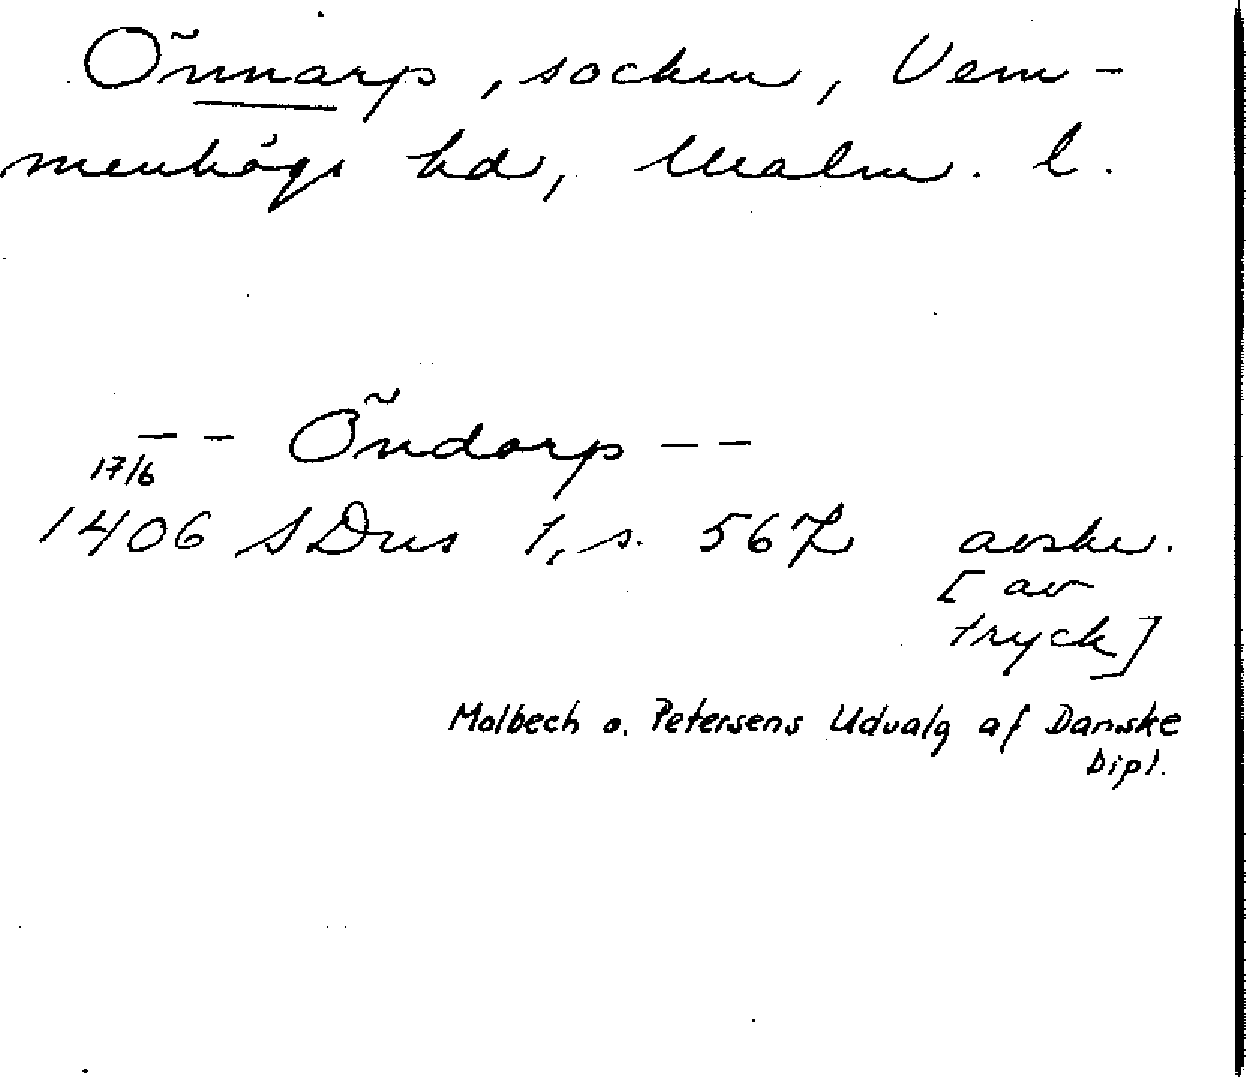 Önnarp, socken, Vem-
menhögs hd, Malm. l.
-- Öndorp --
17/6
1406 SDns 1, s. 567 avskr.
[av
tryck]
Molbech o. Petersens Udvalg af Danske
Dipl.